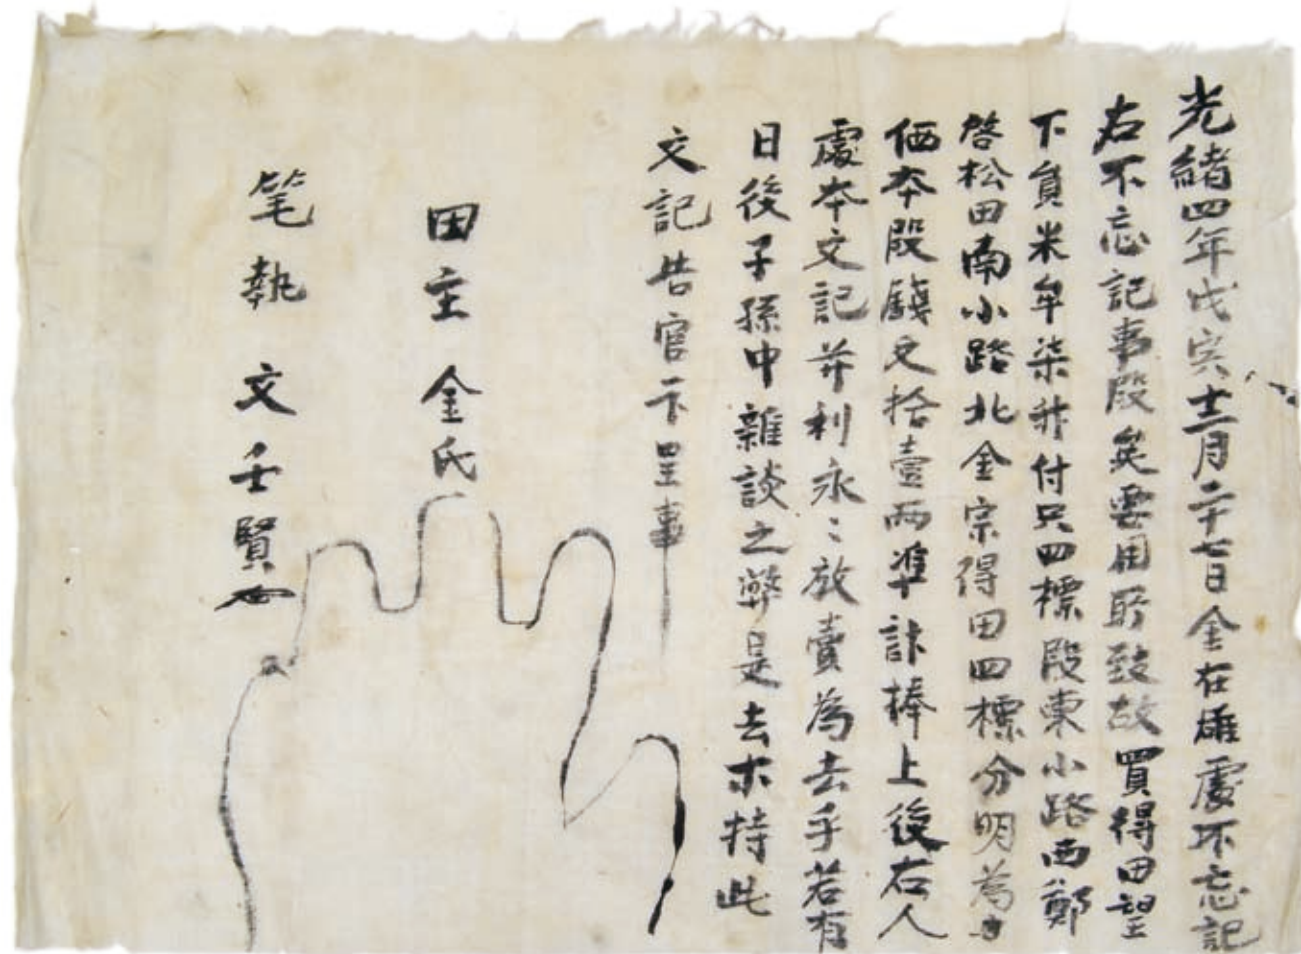 光緖四年戊寅十二月二十七日金在雄處不忘記
右不忘記事段矣要用所致故買得田望
下負米牟柒升付只四標段東小路西鄭
啓松田南小路北金宗得田四標分明為
価本段錢文拾壹兩準計捧上後右人
處本文記并利永〻放賣為去乎若有
日後子孫中雜談之弊是去木持此
文記告官卞呈事
田主 金氏
笔執 文壬賢